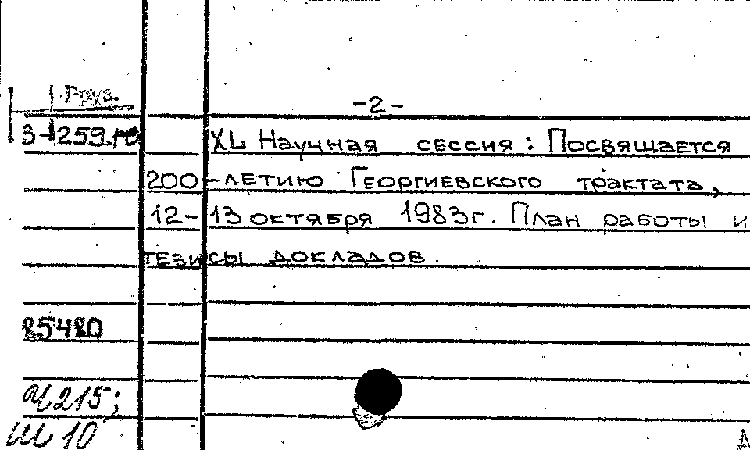 Груз.
-2-
XL Научная сессия: Посвящается
200-летию Георгиевского трактата,
12-13 октября 1983г. План работы и
тезисы докладов.
85480
215;
Ш 10